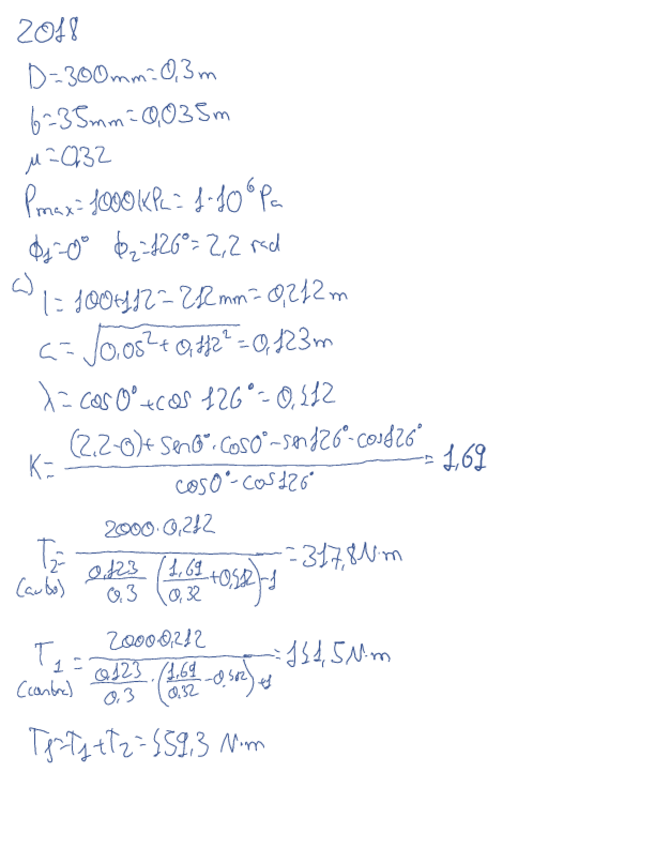 2018
D=300mm=0,3m
b=35mm=0,035m
μ=0,32
Pmax=1000KPa=1·10⁶Pa
ϕ1=0° ϕ2=126°=2,2 rad
a) l=100+112=212mm=0,212m
c=√(0,05²+0,112²)=0,123m
λ=cos0°+cos 126°=0,412
K=((2,2-0)+sen0°·cos0°-sen126°·cos126°)/(cos0°-cos126°)=1,69
T2= (2000·0,212)/((0,123/0,3)(1,69/0,32+0,412)-1)=317,8N·m
T1=(2000·0,212)/((0,123/0,3)·(1,69/0,32-0,412)+1)=141,5N·m
Tf=T1+T2=459,3 N·m